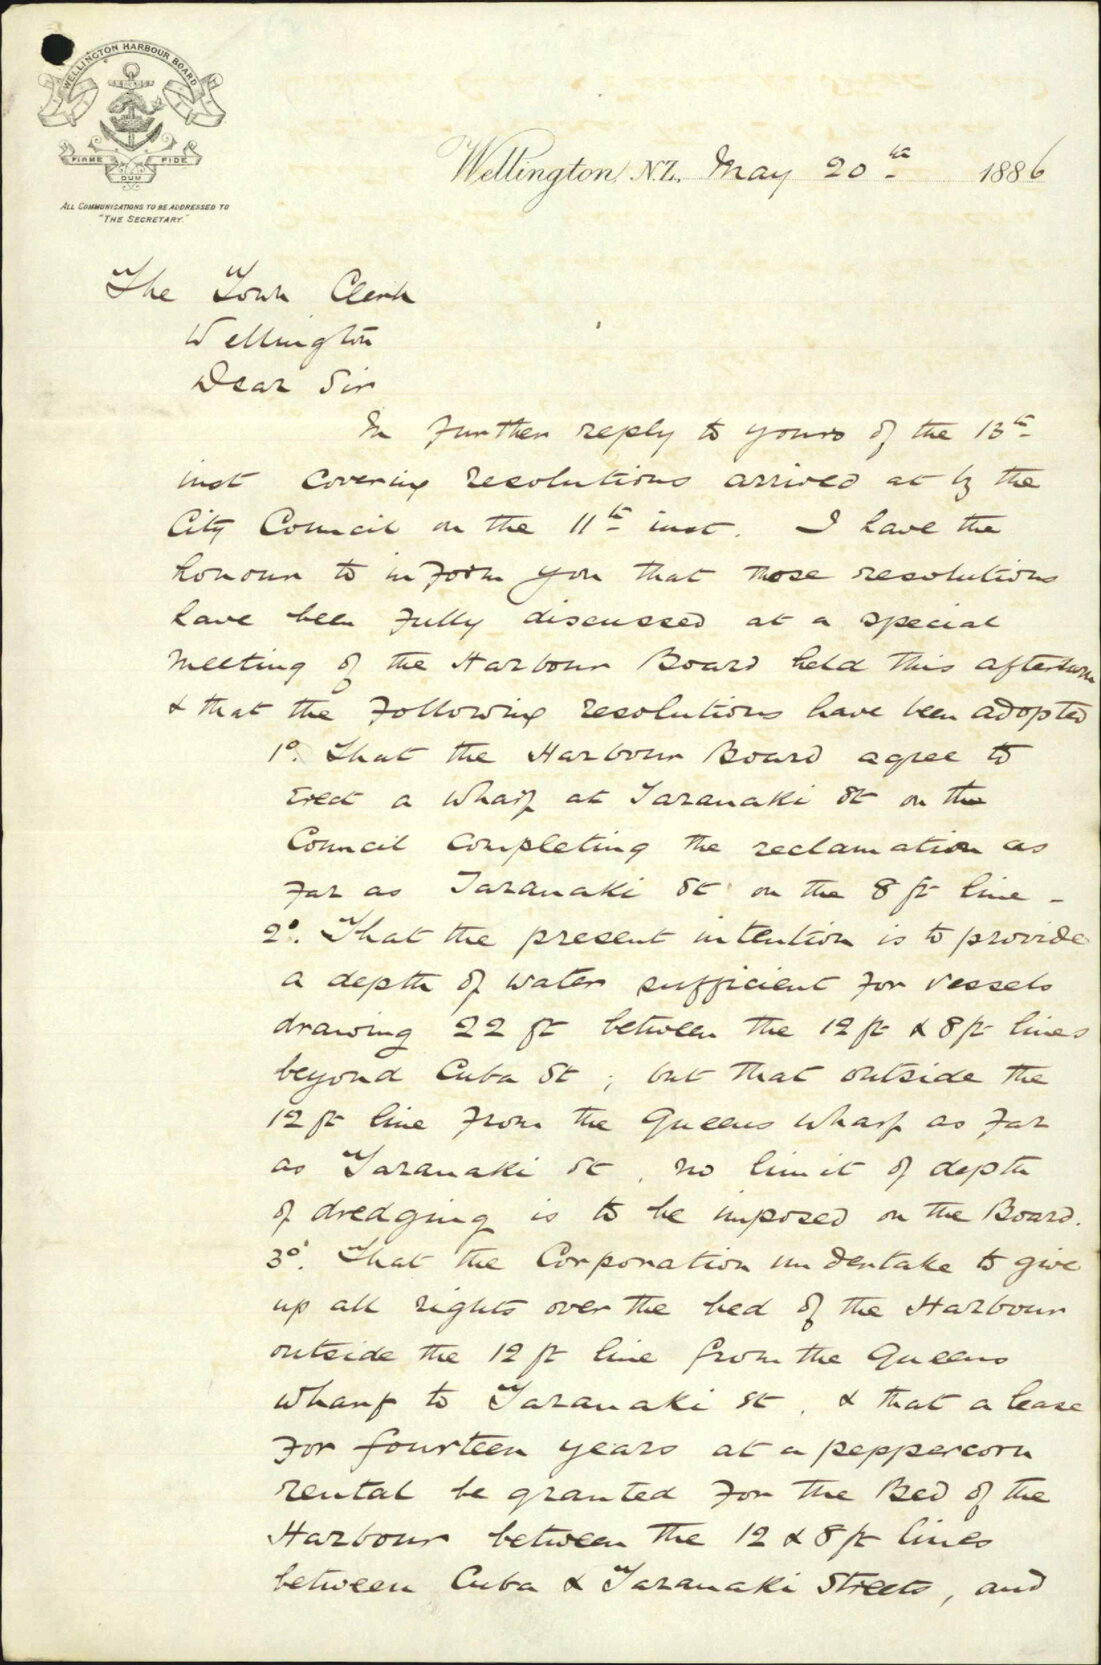 WELLINGTON HARBOUR BOARD
FIRME DUM FIDE
ALL COMMUNICATIONS TO BE ADDRESSED TO
"THE SECRETARY."
Wellington, N.Z., May 20th 1886
The Town Clerk
Wellington
Dear Sir
In further reply to yours of the 13th
inst covering resolutions arrived at by the
City Council on the 11th inst. I have the
honour to inform you that those resolutions
have been fully discussed at a special
meeting of the Harbour Board held this afternoon
& that the following resolutions have been adopted
1o. That the Harbour Board agree to
erect a wharf at Taranaki St on the
Council completing the reclamation as
far as Taranaki St on the 8 ft line -
2o. That the present intention is to provide
a depth of water sufficient for vessels
drawing 22 ft between the 12 ft & 8 ft lines
beyond Cuba St ; but that outside the
12 ft line from the Queens wharf as far
as Taranaki St , no limit of depth
of dredging is to be imposed on the Board.
3o. That the Corporation undertake to give
up all rights over the bed of the Harbour
outside the 12 ft line from the Queens
wharf to Taranaki St , & that a lease
for fourteen years at a peppercorn
rental be granted for the Bed of the
Harbour between the 12 & 8 ft lines
between Cuba & Taranaki Streets, and